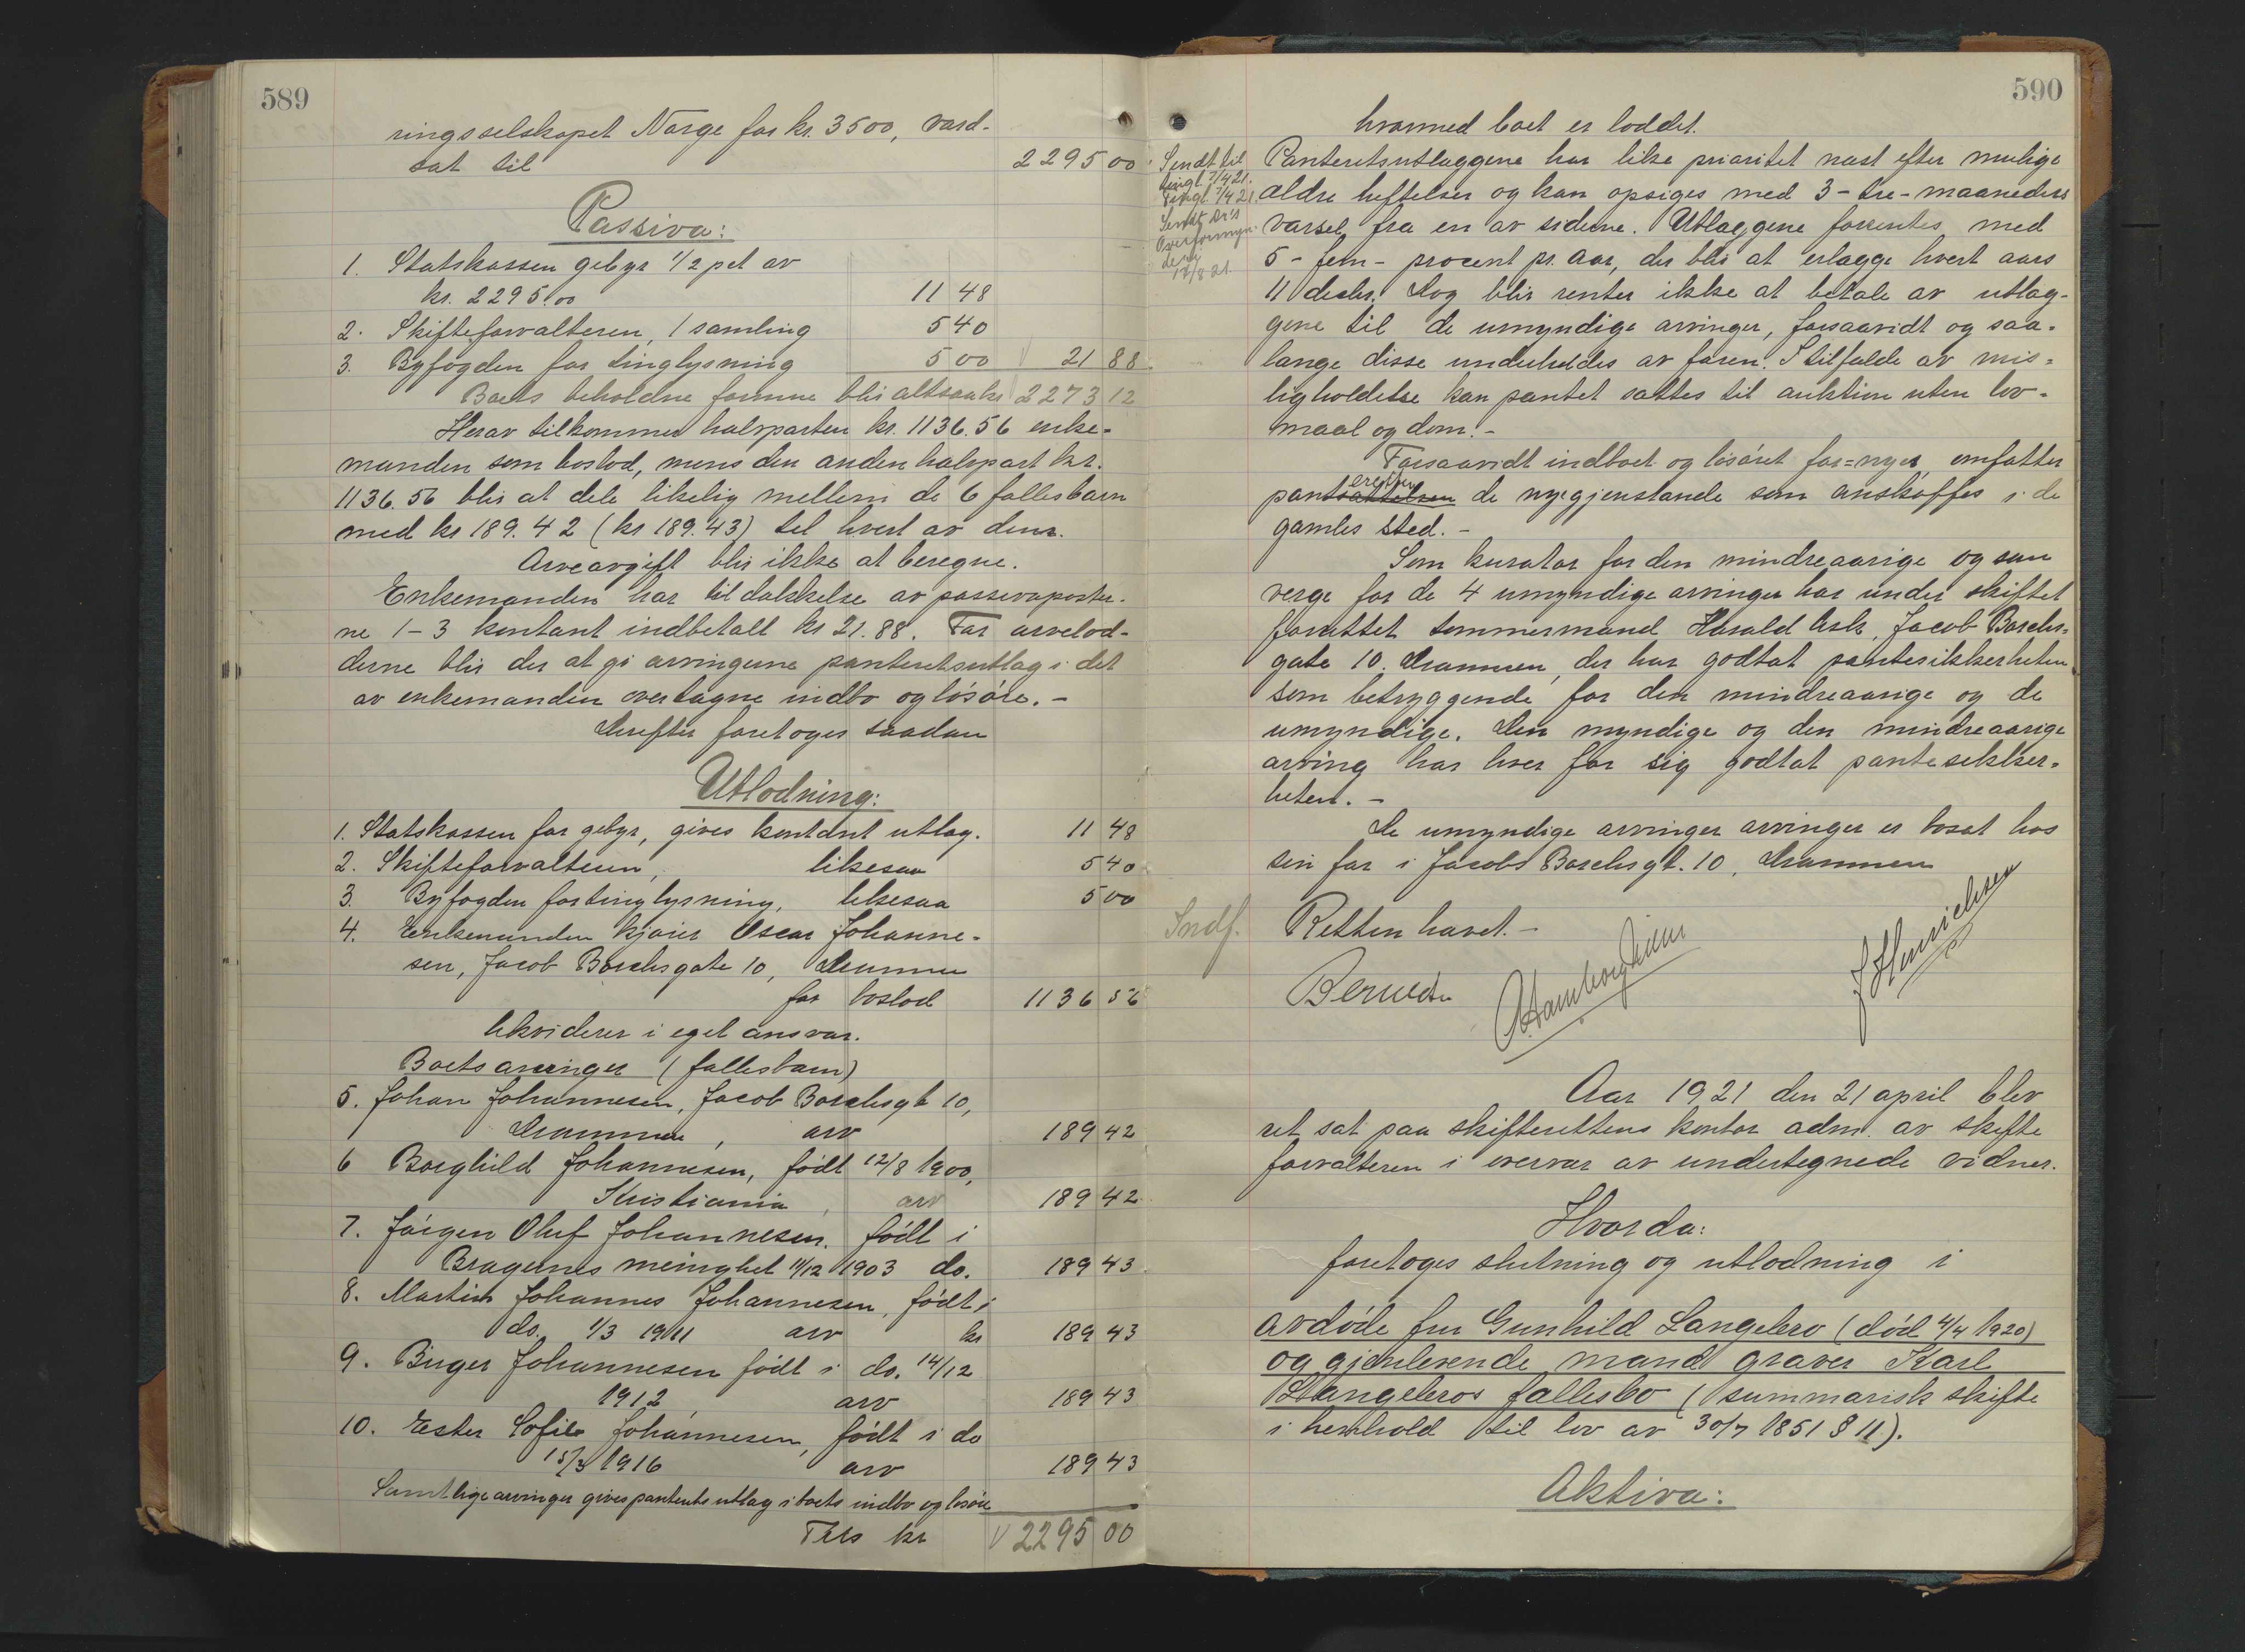 589
ringsselskapet Norge for kr. 3500, værd-
sat til 2295 00
Passiva:
1. Statskassen gebyr 1/2 pct av
kr. 2295.00 11 48
2. Skifteforvalteren, 1 samling 5 40
3. Byfogden for tinglysning 5 00 21 88
Boets beholdne formue blir altsaa kr 2273 12
Herav tilkommer halvparten kr. 1136.56 enke-
manden som boslod, mens den anden halvpart kr.
1136.56 blir at dele likelig mellem de 6 fællesbarn
med kr 189.42 (kr 189.43) til hvert av dem.
Arveavgift blir ikke at beregne.
Enkemanden har til dækkelse av passivaposter-
ne 1-3 kontant indbetalt kr 21.88. For arvelod-
derne blir der at gi arvingerne panteretsutlæg i det
av enkemanden overtagne indbo og løsøre.-
Derefter foretoges saadan
Utlodning:
1. Statskassen for gebyr, gives kontant utlæg. 11 48
2. Skifteforvalteren, likesaa 5 40
3. Byfogden for tinglysning, likesaa 5 00
4. Enkemanden kjører Oscar Johanne-
sen, Jacob Borchsgate 10, Drammen
for boslod 1136 56
likviderer i eget ansvar.
Boets arvinger (fællesbarn)
5. Johan Johannesen, Jacob Borchsgt 10,
Drammen, arv 189 42
6 Borghild Johannesen, født 12/8 1900,
Kristiania, arv 189 42
7. Jørgen Oluf Johannesen. født i
Bragernes menighet 11/12 1903 do. 189 43
8. Martin Johannes Johannesen, født i
do. 1/3 1911 arv kr 189 43
9. Birger Johannesen født i do. 14/12
1912, arv 189 43
10. Ester Sofie Johannesen, født i do
15/3 1916 arv 189 43
Samtlige arvinger gives panterets utlæg i boets indbo og løsøre
Tils kr 2295 00
590
hvormed boet er loddet.
Sendt til
tingl. 7/4 21.
Tingl. 7/4 21.
Sendt
Overformyn-
deri
17/8 21.
Panteretsutlæggene har like prioritet næst efter mulige
ældre heftelser og kan opsiges med 3-tre-maaneders
varsel fra en av siderne. Utlæggene forrentes med
5-fem-procent pr. aar, der blir at erlægge hvert aars
11 decbr. Dog blir renter ikke at betale av utlæg-
gene til de umyndige arvinger, forsaavidt og saa-
længe disse underholdes av faren. I tilfælde av mis-
ligholdelse kan pantet sættes til auktion uten lov-
maal og dom.-
Forsaavidt indboet og løsøret for=nyes, omfatter
pantsættelsen eretten de nye gjenstande som anskaffes i de
gamles sted.-
Som kurator for den mindreaarige og som
verge for de 4 umyndige arvinger har under skiftet
forrettet tømmermand Harald Ask, Jacob Borchs-
gate 10. Drammen, der har godtat pantesikkerheten
som betryggende for den mindreaarige og de
umyndige. Den myndige og den mindreaarige
arving har hver for sig godtat pantesikker-
heten.-
De umyndige arvinger arvinger er bosat hos
sin far i Jacobs Borchsgt. 10, Drammen
Indf. Retten hævet.-
Aar 1921 den 21 april blev
ret sat paa skifterettens kontor adm. av skifte
forvalteren i overvær av undertegnede vidner.
Hvorda:
foretoges slutning og utlodning i
avdøde fru Gunhild Langebro (død 4/4 1920)
og gjenlevende mand graver Karl
Langebros fællesbo (summarisk skifte
i henhold til lov av 30/7 1851 § 11).
Aktiva: